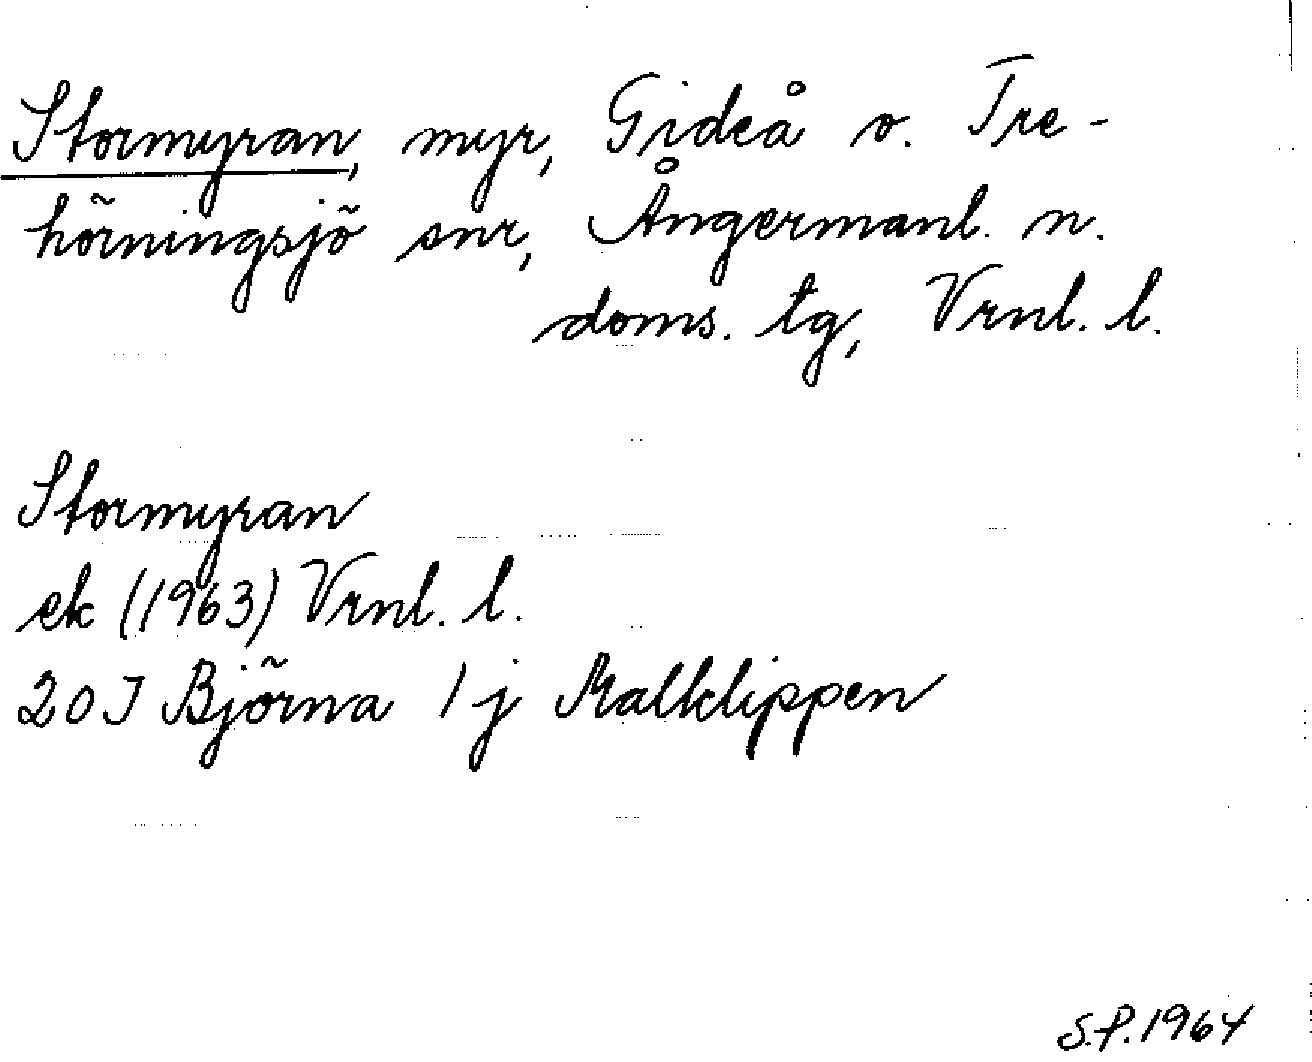 Stormyran, myr, Gideå o. Tre-
hörningsjö snr, Ångermanl. n.
doms. tg, Vrnl. l.
Stormyran
ek (1963) Vrnl. l.
20 I Björna 1 j Malklippen
S.P. 1964